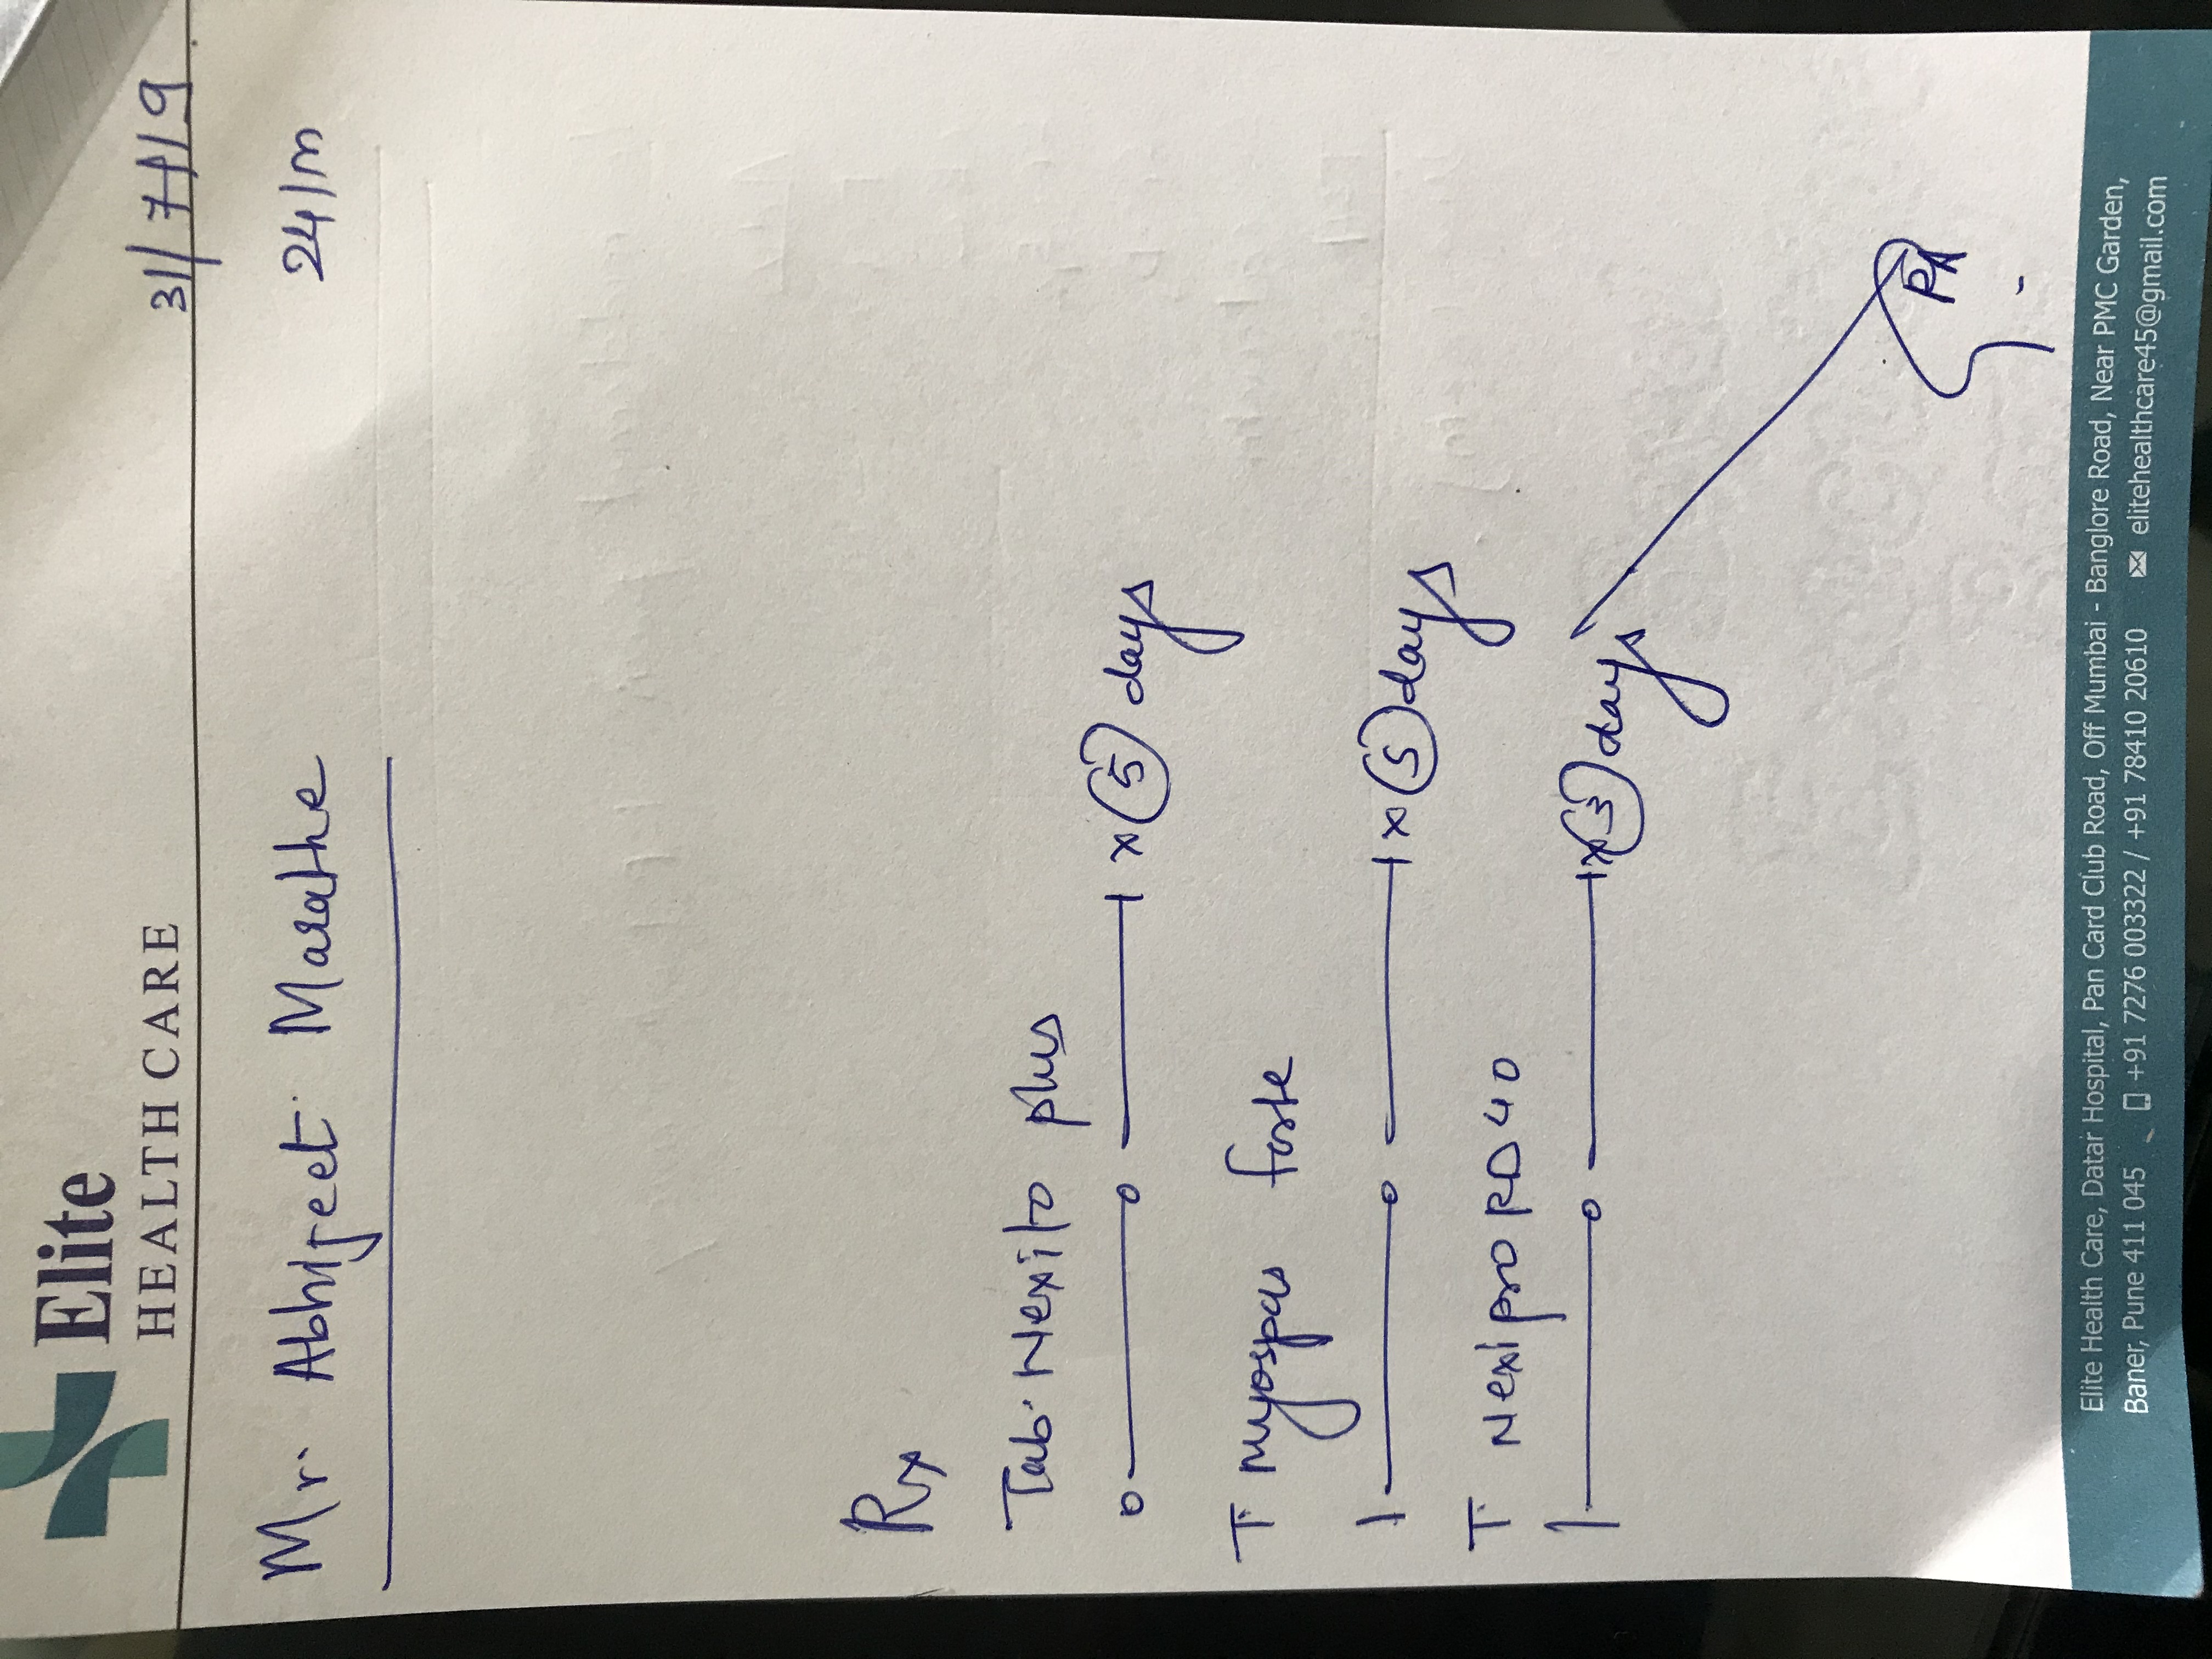 Elite
HEALTH CARE
31/7/19
Mr. Abhijeet Marathe 24/m
Rx
Tab. Nexito plus
o — o — 1 x 5 days
T. Myospas forte
1 — o — 1 x 5 days
T. Nexipro RD 40
1 — o — 1 x 3 days
PA
Elite Health Care, Datar Hospital, Pan Card Club Road, Off Mumbai - Banglore Road, Near PMC Garden,
Baner, Pune 411 045 +91 7276 003322 / +91 78410 20610 elitehealthcare45@gmail.com